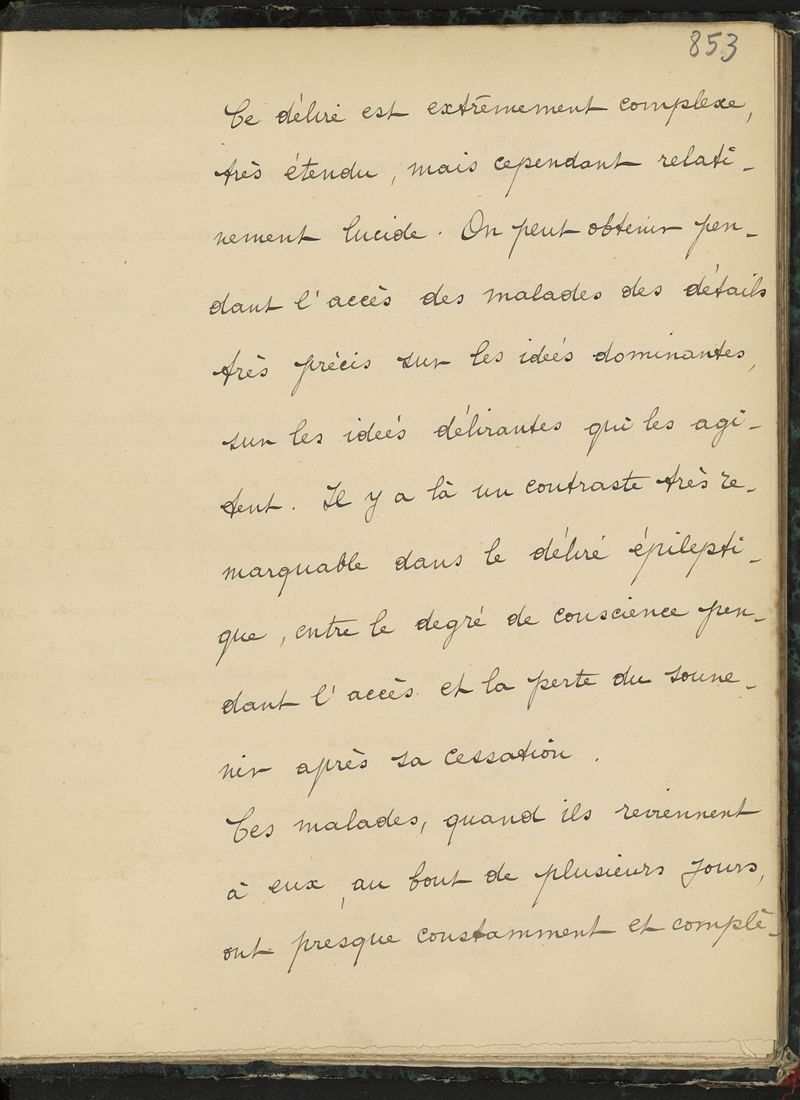 853
Ce délire est extrêmement complexe,
très étendu, mais cependant relati-
vement lucide. On peut obtenir pen-
dant l'accès des malades des détails
très précis sur les idées dominantes,
sur les idées délirantes qui les agi-
tent. Il y a là un contraste très re-
marquable dans le délire épilepti-
que, entre le degré de conscience pen-
dant l'accès et la perte du souve-
nir après sa cessation.
Ces malades, quand ils reviennent
à eux, au bout de plusieurs jours,
ont presque constamment et complè-